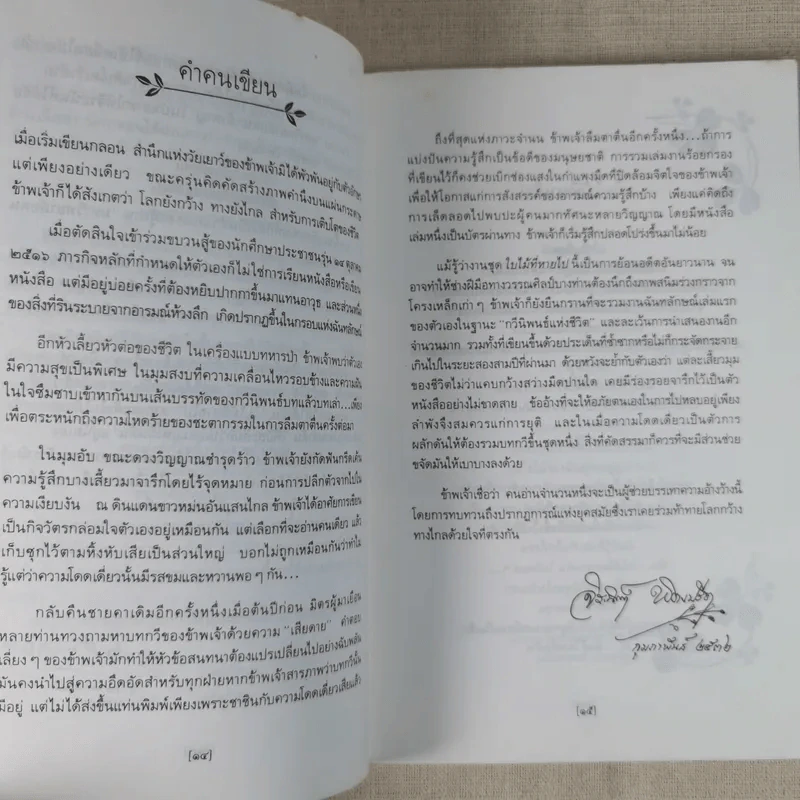 คำคนเขียน
เมื่อเริ่มเขียนกลอน สำนึกแห่งวัยเยาว์ของข้าพเจ้ามิได้พัวพันอยู่กับตัวอักษร
แต่เพียงอย่างเดียว ขณะครุ่นคิดคัดสร้างภาพคำนึงบนแผ่นกระดาษ
ข้าพเจ้าก็ได้สังเกตว่า โลกยังกว้าง ทางยังไกล สำหรับการเติบโตของชีวิต
เมื่อตัดสินใจเข้าร่วมขบวนสู้ของนักศึกษาประชาชนรุ่น ๑๔ ตุลาคม
๒๕๑๖ ภารกิจหลักที่กำหนดให้ตัวเองก็ไม่ใช่การเรียนหนังสือหรือเขียน
หนังสือ แต่มีอยู่บ่อยครั้งที่ต้องหยิบปากกาขึ้นมาแทนอาวุธ และส่วนหนึ่ง
ของสิ่งที่รินระบายจากอารมณ์ห้วงลึก เกิดปรากฏขึ้นในกรอบแห่งฉันทลักษณ์
อีกหัวเลี้ยวหัวต่อของชีวิต ในเครื่องแบบทหารป่า ข้าพเจ้าพบว่าตัวเอง
มีความสุขเป็นพิเศษ ในมุมสงบที่ความเคลื่อนไหวรอบข้างและความฝัน
ในใจซึมซาบเข้าหากันบนเส้นบรรทัดของกวีนิพนธ์บทแล้วบทเล่า...เพียง
เพื่อตระหนักถึงความโหดร้ายของชะตากรรมในการลืมตาตื่นครั้งต่อมา
ในมุมอับ ขณะดวงวิญญาณชำรุดร้าว ข้าพเจ้ายังกัดฟันกรีดเค้น
ความรู้สึกบางเสี้ยวมาจารึกโดยไร้จุดหมาย ก่อนการปลีกตัวจากไปใน
ความเงียบงัน ณ ดินแดนชาวหม่นอันแสนไกล ข้าพเจ้าได้อาศัยการเขียน
เป็นกิจวัตรกล่อมใจตัวเองอยู่เหมือนกัน แต่เลือกที่จะอ่านคนเดียว แล้ว
เก็บซุกไว้ตามหิ้งหับเสียเป็นส่วนใหญ่ บอกไม่ถูกเหมือนกันว่าทำไม
รู้แต่ว่าความโดดเดี่ยวนั้นมีรสขมและหวานพอ ๆ กัน...
กลับคืนชายคาเดิมอีกครั้งหนึ่งเมื่อต้นปีก่อน มิตรผู้มาเยือน
หลายท่านทวงถามหาบทกวีของข้าพเจ้าด้วยความ "เสียดาย" คำตอบ
เลี่ยง ๆ ของข้าพเจ้ามักทำให้หัวข้อสนทนาต้องแปรเปลี่ยนไปอย่างฉับพลัน
มันคงนำไปสู่ความอึดอัดสำหรับทุกฝ่ายหากข้าพเจ้าสารภาพว่าบทกวีนั้น
มีอยู่ แต่ไม่ได้ส่งขึ้นแท่นพิมพ์เพียงเพราะชาชินกับความโดดเดี่ยวเสียแล้ว
[๑๔]
ถึงที่สุดแห่งภาวะจำนน ข้าพเจ้าลืมตาตื่นอีกครั้งหนึ่ง...ถ้าการ
แบ่งปันความรู้สึกเป็นข้อดีของมนุษยชาติ การรวมเล่มงานร้อยกรอง
ที่เขียนไว้ก็คงช่วยเบิกช่องแสงในกำแพงมืดที่ปิดล้อมจิตใจของข้าพเจ้า
เพื่อให้โอกาสแก่การสังสรรค์ของอารมณ์ความรู้สึกบ้าง เพียงแค่คิดถึง
การเล็ดลอดไปพบปะผู้คนมากทัศนะหลายวิญญาณ โดยมีหนังสือ
เล่มหนึ่งเป็นบัตรผ่านทาง ข้าพเจ้าก็เริ่มรู้สึกปลอดโปร่งขึ้นมาไม่น้อย
แม้รู้ว่างานชุด ใบไม้ที่หายไป นี้เป็นการย้อนอดีตอันยาวนาน จน
อาจทำให้ช่างฝีมือทางวรรณศิลป์บางท่านต้องนึกถึงภาพสนิมร่วงกราวจาก
โครงเหล็กเก่า ๆ ข้าพเจ้าก็ยังยืนกรานที่จะรวมงานฉันทลักษณ์เล่มแรก
ของตัวเองในฐานะ "กวีนิพนธ์แห่งชีวิต" และละเว้นการนำเสนองานอีก
จำนวนมาก รวมทั้งที่เขียนขึ้นด้วยประเด็นที่ซ้ำซากหรือไม่ก็กระจัดกระจาย
เกินไปในระยะสองสามปีที่ผ่านมา ด้วยหวังจะย้ำกับตัวเองว่า แต่ละเสี้ยวมุม
ของชีวิตไม่ว่าแคบกว้างสว่างมืดปานใด เคยมีร่องรอยจารึกไว้เป็นตัว
หนังสืออย่างไม่ขาดสาย ข้ออ้างที่จะให้อภัยตนเองในการไปหลบอยู่เพียง
ลำพังจึงสมควรแก่การยุติ และในเมื่อความโดดเดี่ยวเป็นตัวการ
ผลักดันให้ต้องรวบบทกวีขึ้นชุดหนึ่ง สิ่งที่คัดสรรมาก็ควรที่จะมีส่วนช่วย
ขจัดมันให้เบาบางลงด้วย
ข้าพเจ้าเชื่อว่า คนอ่านจำนวนหนึ่งจะเป็นผู้ช่วยบรรเทาความอ้างว้างนี้
โดยการทบทวนถึงปรากฏการณ์แห่งยุคสมัยซึ่งเราเคยร่วมท้าทายโลกกว้าง
ทางไกลด้วยใจที่ตรงกัน
กุมภาพันธ์ ๒๕๓๒
[๑๕]